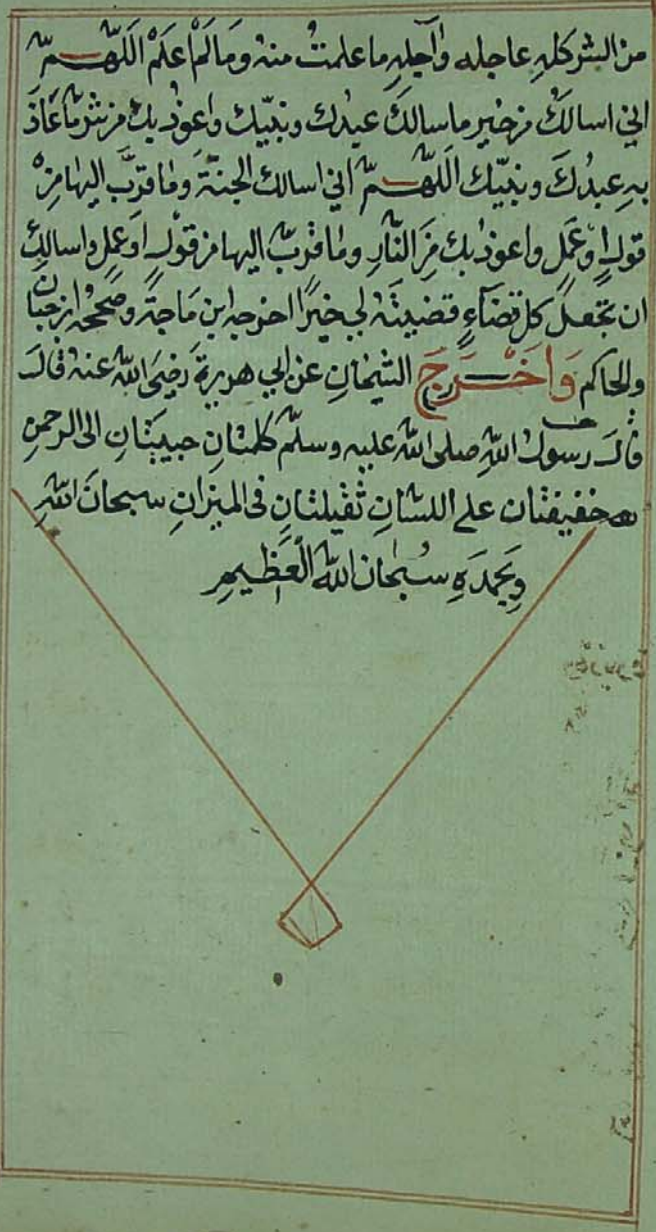 من الشر كلهِ عاجله واٰجلهِ ما علمتُ منهُ وما لَمْ اَعلَمْ اَللّٰهُــمَّ
اني اسالكَ من خيرِ ما سالكَ عبدك ونبيّك واعوذ بك من شرِ ما عَاذَ
بهِ عبدُكَ ونبيّك اَللّٰهُــمَّ اني اسالك الجنّةَ وما قرّبَ اليها مِنْ
قولٍ اَوْ عَمَلٍ واعوذ بك مِنَ النّارِ وما قربّ اليها من قولٍ اَو عملٍ واسالك
ان تجعلَ كل قضآءٍ قضيتَهُ لي خيرًا اخرجه ابن مَاجة وصححهُ ابن حبان
والحاكم وَاَخْــرَجَ الشيخانِ عن ابي هريرة رَضِيَ اللّٰه عنهُ قالَ
قالَ رسولُ اللّٰهِ صلى اللّٰه عليهِ وسلّم كلمتانِ حبيبَتَانِ الى الرحمن
خفيفتان على اللسَانِ ثقيلتانِ فى الميزانِ سبحانَ اللّٰهِ
وبحمدَهِ سُبحَانَ اللّٰهِ الْعَظِيمِ